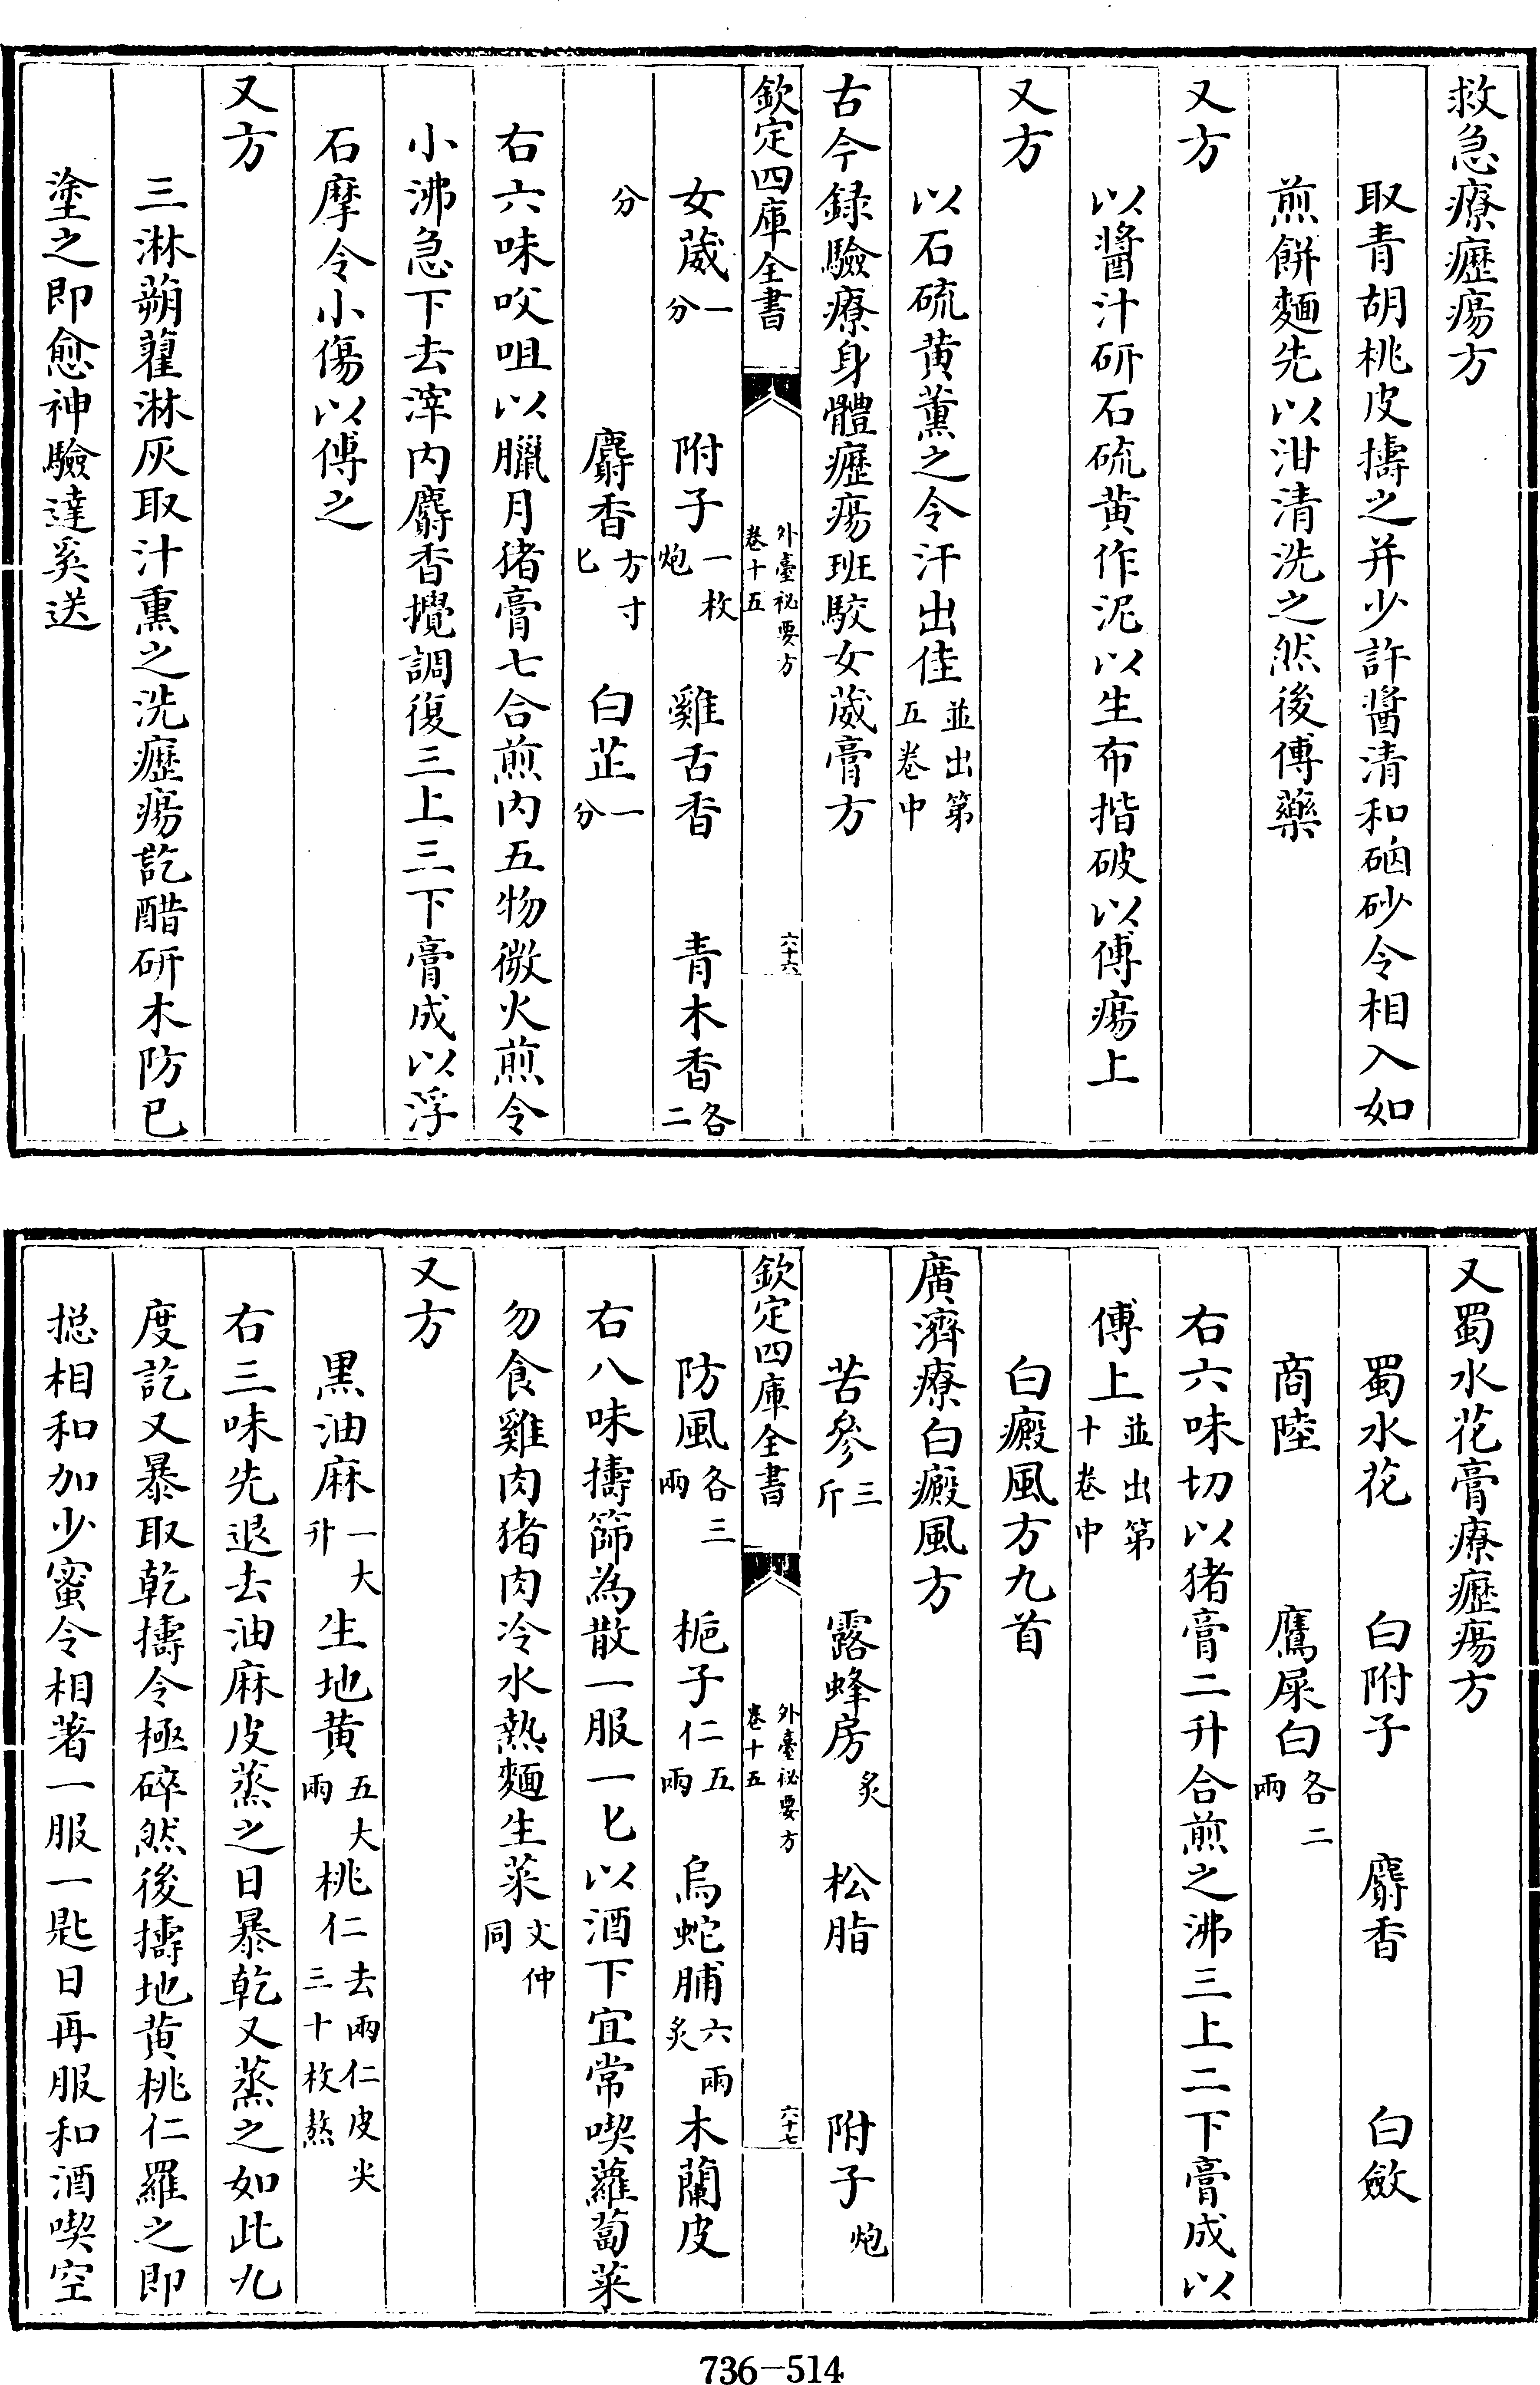 救急療癧瘍方
取青胡桃皮擣之并少許醬清和硇砂令相入如
煎餅麵先以泔清洗之然後傅藥
又方
以醬汁研石硫黄作泥以生布揩破以傅瘍上
又方
以石硫黄薰之令汗出佳並出第五卷中
古今録驗療身體癧瘍班駮女葳膏方
欽定四庫全書 外臺祕要方卷十五 六十六
女葳一分 附子一枚炮 雞舌香 青木香各二
分 麝香方寸匕 白芷一分
右六味㕮咀以臘月猪膏七合煎内五物微火煎令
小沸急下去滓内麝香攪調復三上三下膏成以浮
石摩令小傷以傅之
又方
三淋蒴藋淋灰取汁熏之洗癧瘍訖醋研木防已
塗之即愈神驗達奚送
又蜀水花膏療癧瘍方
蜀水花 白附子 麝香 白斂
商陸 鷹屎白各二兩
右六味切以猪膏二升合煎之沸三上二下膏成以
傅上並出第十卷中
白癜風方九首
廣濟療白癜風方
欽定四庫全書 外臺祕要方卷十五 六十七
苦參三斤 露蜂房炙 松脂 附子炮
防風各三兩 梔子仁五兩 烏蛇脯六兩炙 木蘭皮
右八味擣篩為散一服一匕以酒下宜常喫蘿蔔菜
勿食雞肉猪肉冷水熱麵生菜文仲同
又方
黒油麻一大升 生地黄五大兩 桃仁去兩仁皮尖三十枚熬
右三味先退去油麻皮蒸之日暴乾又蒸之如此九
度訖又暴取乾擣令極碎然後擣地黄桃仁羅之即
捴相和加少蜜令相著一服一匙日再服和酒喫空
736-514